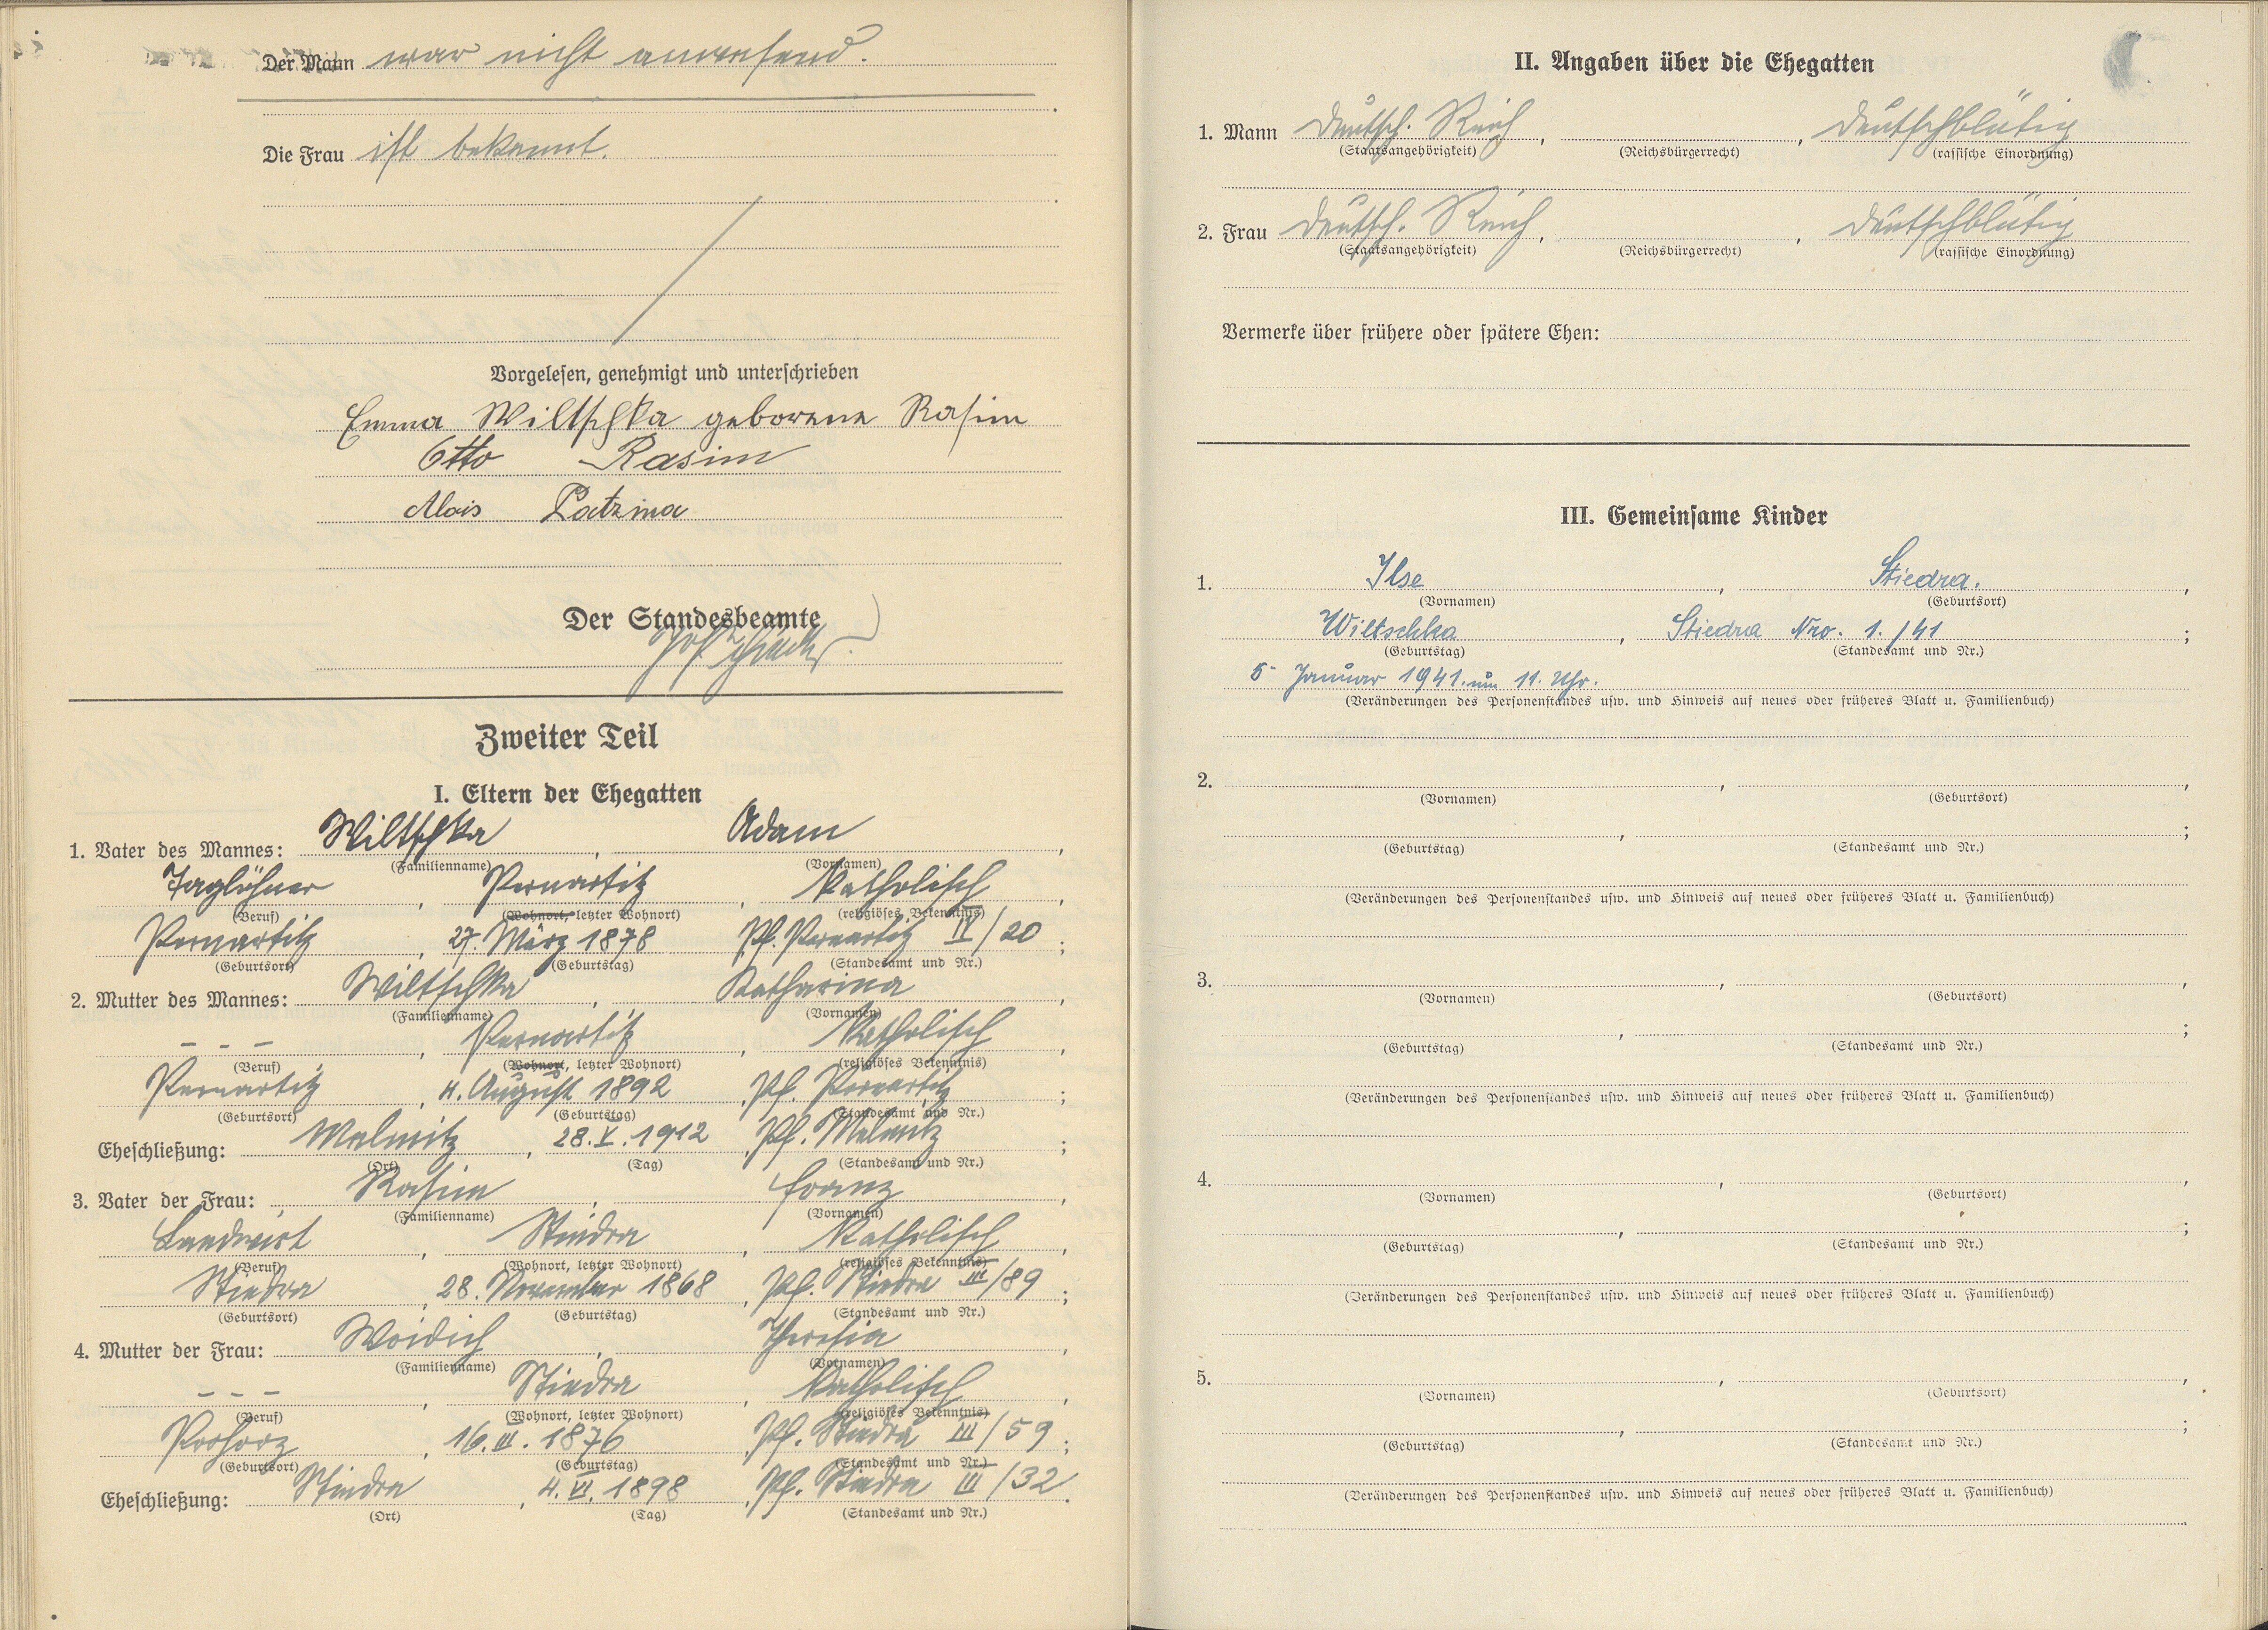 Der Mann war nicht anwesend.
Die Frau ist bekannt.
Vorgelesen, genehmigt und unterschrieben
Emma Wiltschka geborene Rasim
Otto Rasim
Alois Patzina
Der Standesbeamte
Zweiter Teil
I. Eltern der Ehegatten
1. Vater des Mannes: Wiltschka, Adam,
(Familienname) (Vornamen)
Taglöhner, Pernartitz, katholisch,
(Beruf) (Wohnort, letzter Wohnort) (religiöses Bekenntnis)
Pernartitz, 27. März 1878, Pf. Pernartitz IV/20;
(Geburtsort) (Geburtstag) (Standesamt und Nr.)
2. Mutter des Mannes: Wiltschka, Katharina,
(Familienname) (Vornamen)
– – –, Pernartitz, katholisch,
(Beruf) (Wohnort, letzter Wohnort) (religiöses Bekenntnis)
Pernartitz, 4. August 1892, Pf. Pernartitz;
(Geburtsort) (Geburtstag) (Standesamt und Nr.)
Eheschließung: 28.V.1912, Pf.;
(Ort) (Tag) (Standesamt und Nr.)
3. Vater der Frau: Rasim, Franz,
(Familienname) (Vornamen)
Landwirt, Stiedra, katholisch,
(Beruf) (Wohnort, letzter Wohnort) (religiöses Bekenntnis)
Stiedra, 28. November 1868, Pf. Stiedra III/89;
(Geburtsort) (Geburtstag) (Standesamt und Nr.)
4. Mutter der Frau: Woidich, Theresia,
(Familienname) (Vornamen)
– – –, Stiedra, katholisch,
(Beruf) (Wohnort, letzter Wohnort) (religiöses Bekenntnis)
Prohorz, 16.III.1876, Pf. Stiedra III/59;
(Geburtsort) (Geburtstag) (Standesamt und Nr.)
Eheschließung: Stiedra, 4.VI.1898, Pf. Stiedra III/32.
(Ort) (Tag) (Standesamt und Nr.)
II. Angaben über die Ehegatten
1. Mann Deutsch. Reich, , deutschblütig
(Staatsangehörigkeit) (Reichsbürgerrecht) (rassische Einordnung)
2. Frau Deutsch. Reich, , deutschblütig
(Staatsangehörigkeit) (Reichsbürgerrecht) (rassische Einordnung)
Vermerke über frühere oder spätere Ehen:
III. Gemeinsame Kinder
1. Ilse, Stiedra.,
(Vornamen) (Geburtsort)
Wiltschka, Stiedra Nro. 1./41;
(Geburtstag) (Standesamt und Nr.)
5. Januar 1941. um 11. Uhr.
(Veränderungen des Personenstandes usw. und Hinweis auf neues oder früheres Blatt u. Familienbuch)
2. , ,
(Vornamen) (Geburtsort)
, ;
(Geburtstag) (Standesamt und Nr.)
(Veränderungen des Personenstandes usw. und Hinweis auf neues oder früheres Blatt u. Familienbuch)
3. , ,
(Vornamen) (Geburtsort)
, ;
(Geburtstag) (Standesamt und Nr.)
(Veränderungen des Personenstandes usw. und Hinweis auf neues oder früheres Blatt u. Familienbuch)
4. , ,
(Vornamen) (Geburtsort)
, ;
(Geburtstag) (Standesamt und Nr.)
(Veränderungen des Personenstandes usw. und Hinweis auf neues oder früheres Blatt u. Familienbuch)
5. , ,
(Vornamen) (Geburtsort)
, ;
(Geburtstag) (Standesamt und Nr.)
(Veränderungen des Personenstandes usw. und Hinweis auf neues oder früheres Blatt u. Familienbuch)